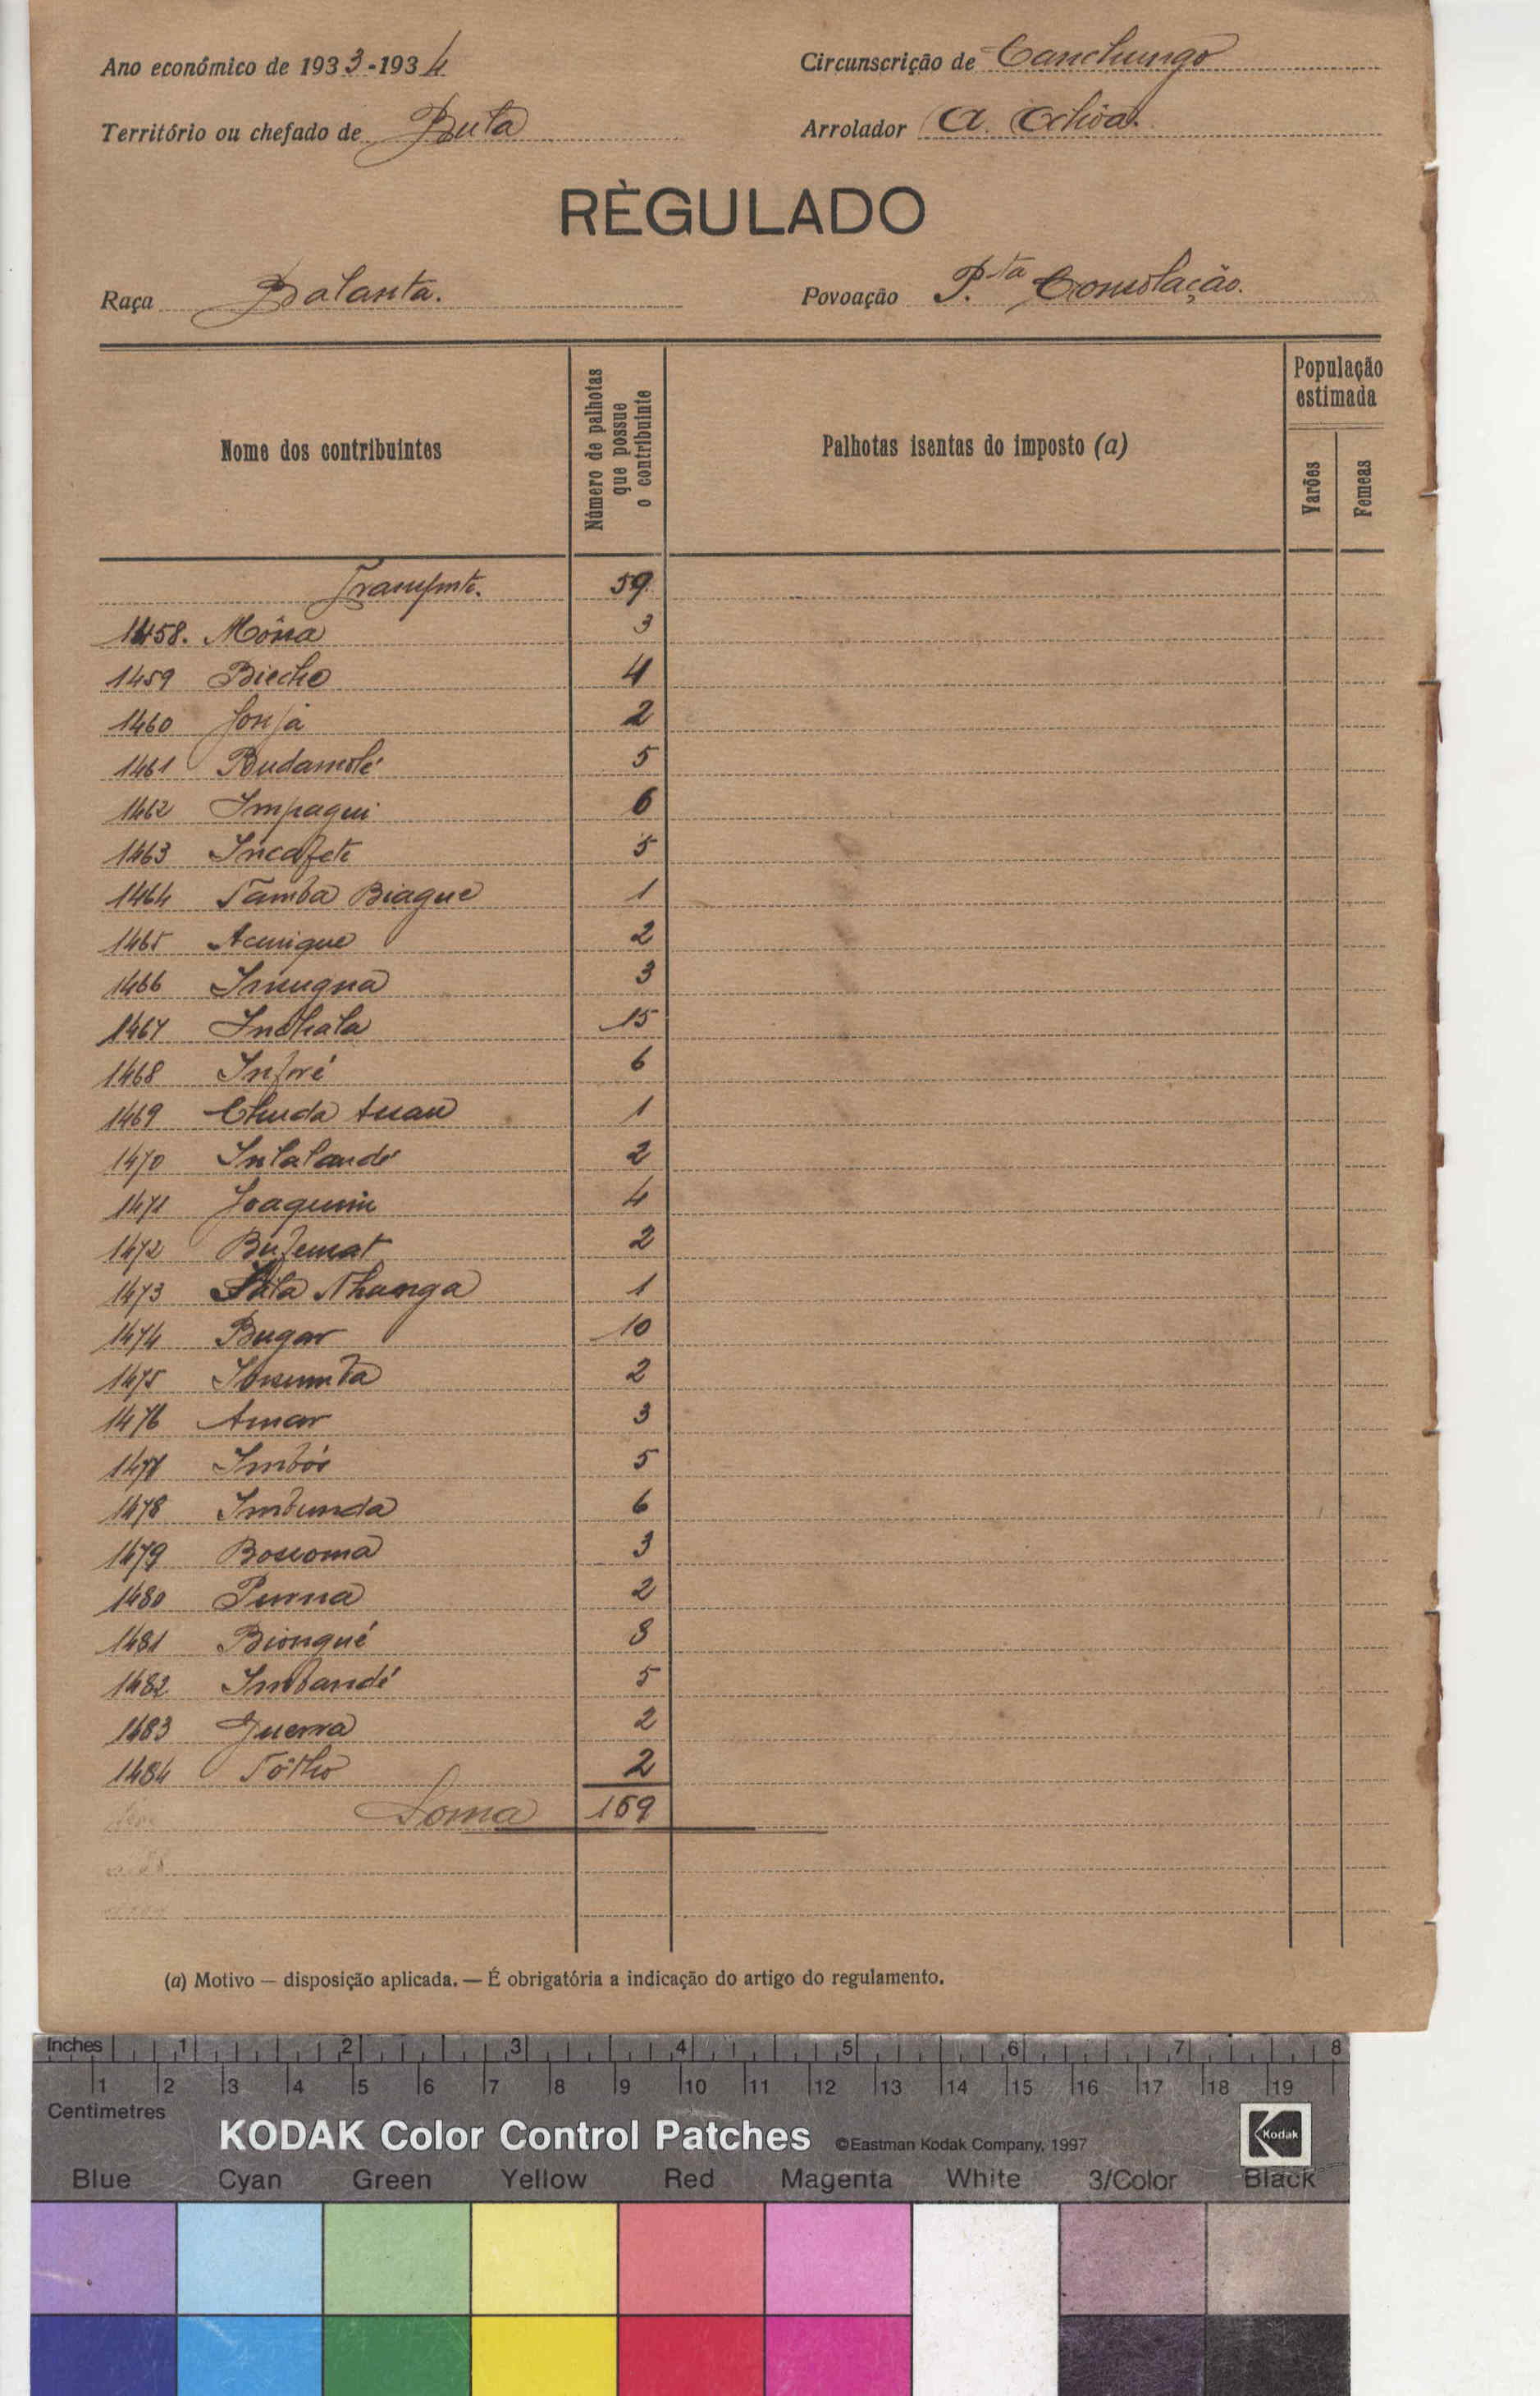 Ano económico de 1933-1934 Circunscrição de Canchungo
Território ou chefado de Buta Arrolador A. Ochôa.
RÈGULADO
Raça Balanta. Povoação P.ta Consolação.
Nome dos contribuintes
Número de palhotas que possue o contribuinte
Palhotas isentas do imposto (a)
População estimada
Varões
Femeas
Transpte. 59
1458. Môna 3
1459 Bieche 4
1460 Jonja 2
1461 Budamolé 5
1462 Impaqui 6
1463 Incafete 5
1464 Tamba Biague 1
1465 Acunique 2
1466 3
1467 Inchala 15
1468 Inforé 6
1469 Chuda 1
1470 Inlalandé 2
1471 Joaquim 4
1472 2
1473 Nhanga 1
1474 Bugar 10
1475 2
1476 Amar 3
1477 Imbós 5
1478 Imbunda 6
1479 3
1480 2
1481 Bionqué 8
1482 Imbandé 5
1483 Guerra 2
1484 Tótho 2
Soma 169
(a) Motivo — disposição aplicada. — É obrigatória a indicação do artigo do regulamento.
Inches 1 2 3 4 5 6 7 8
1 2 3 4 5 6 7 8 9 10 11 12 13 14 15 16 17 18 19
Centimetres
KODAK Color Control Patches ©Eastman Kodak Company, 1997 Kodak
Blue Cyan Green Yellow Red Magenta White 3/Color Black